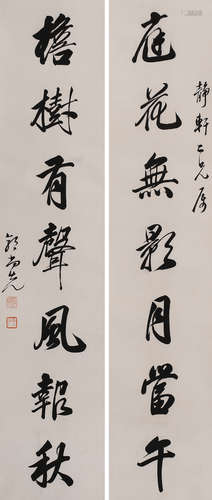 庭花無影月當午
靜軒二兄屬
檐樹有聲風報秋
郭尚先